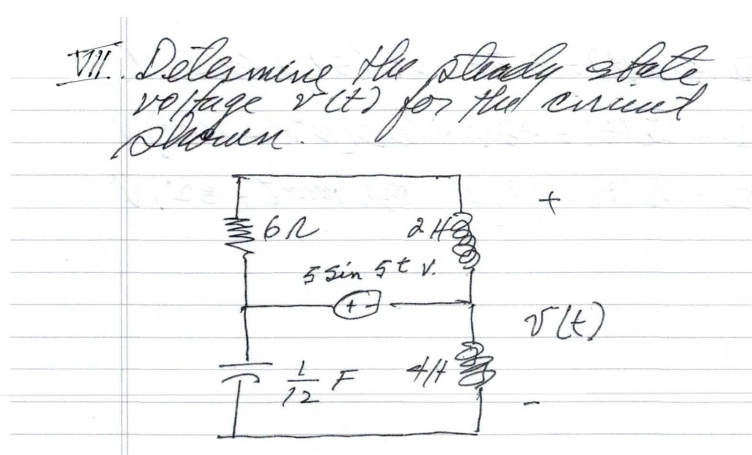 VII. Determine the steady state
voltage v(t) for the circuit
shown.
+
6Ω
2H
5 sin 5t v.
+ -
v(t)
1/12 F
4H
-